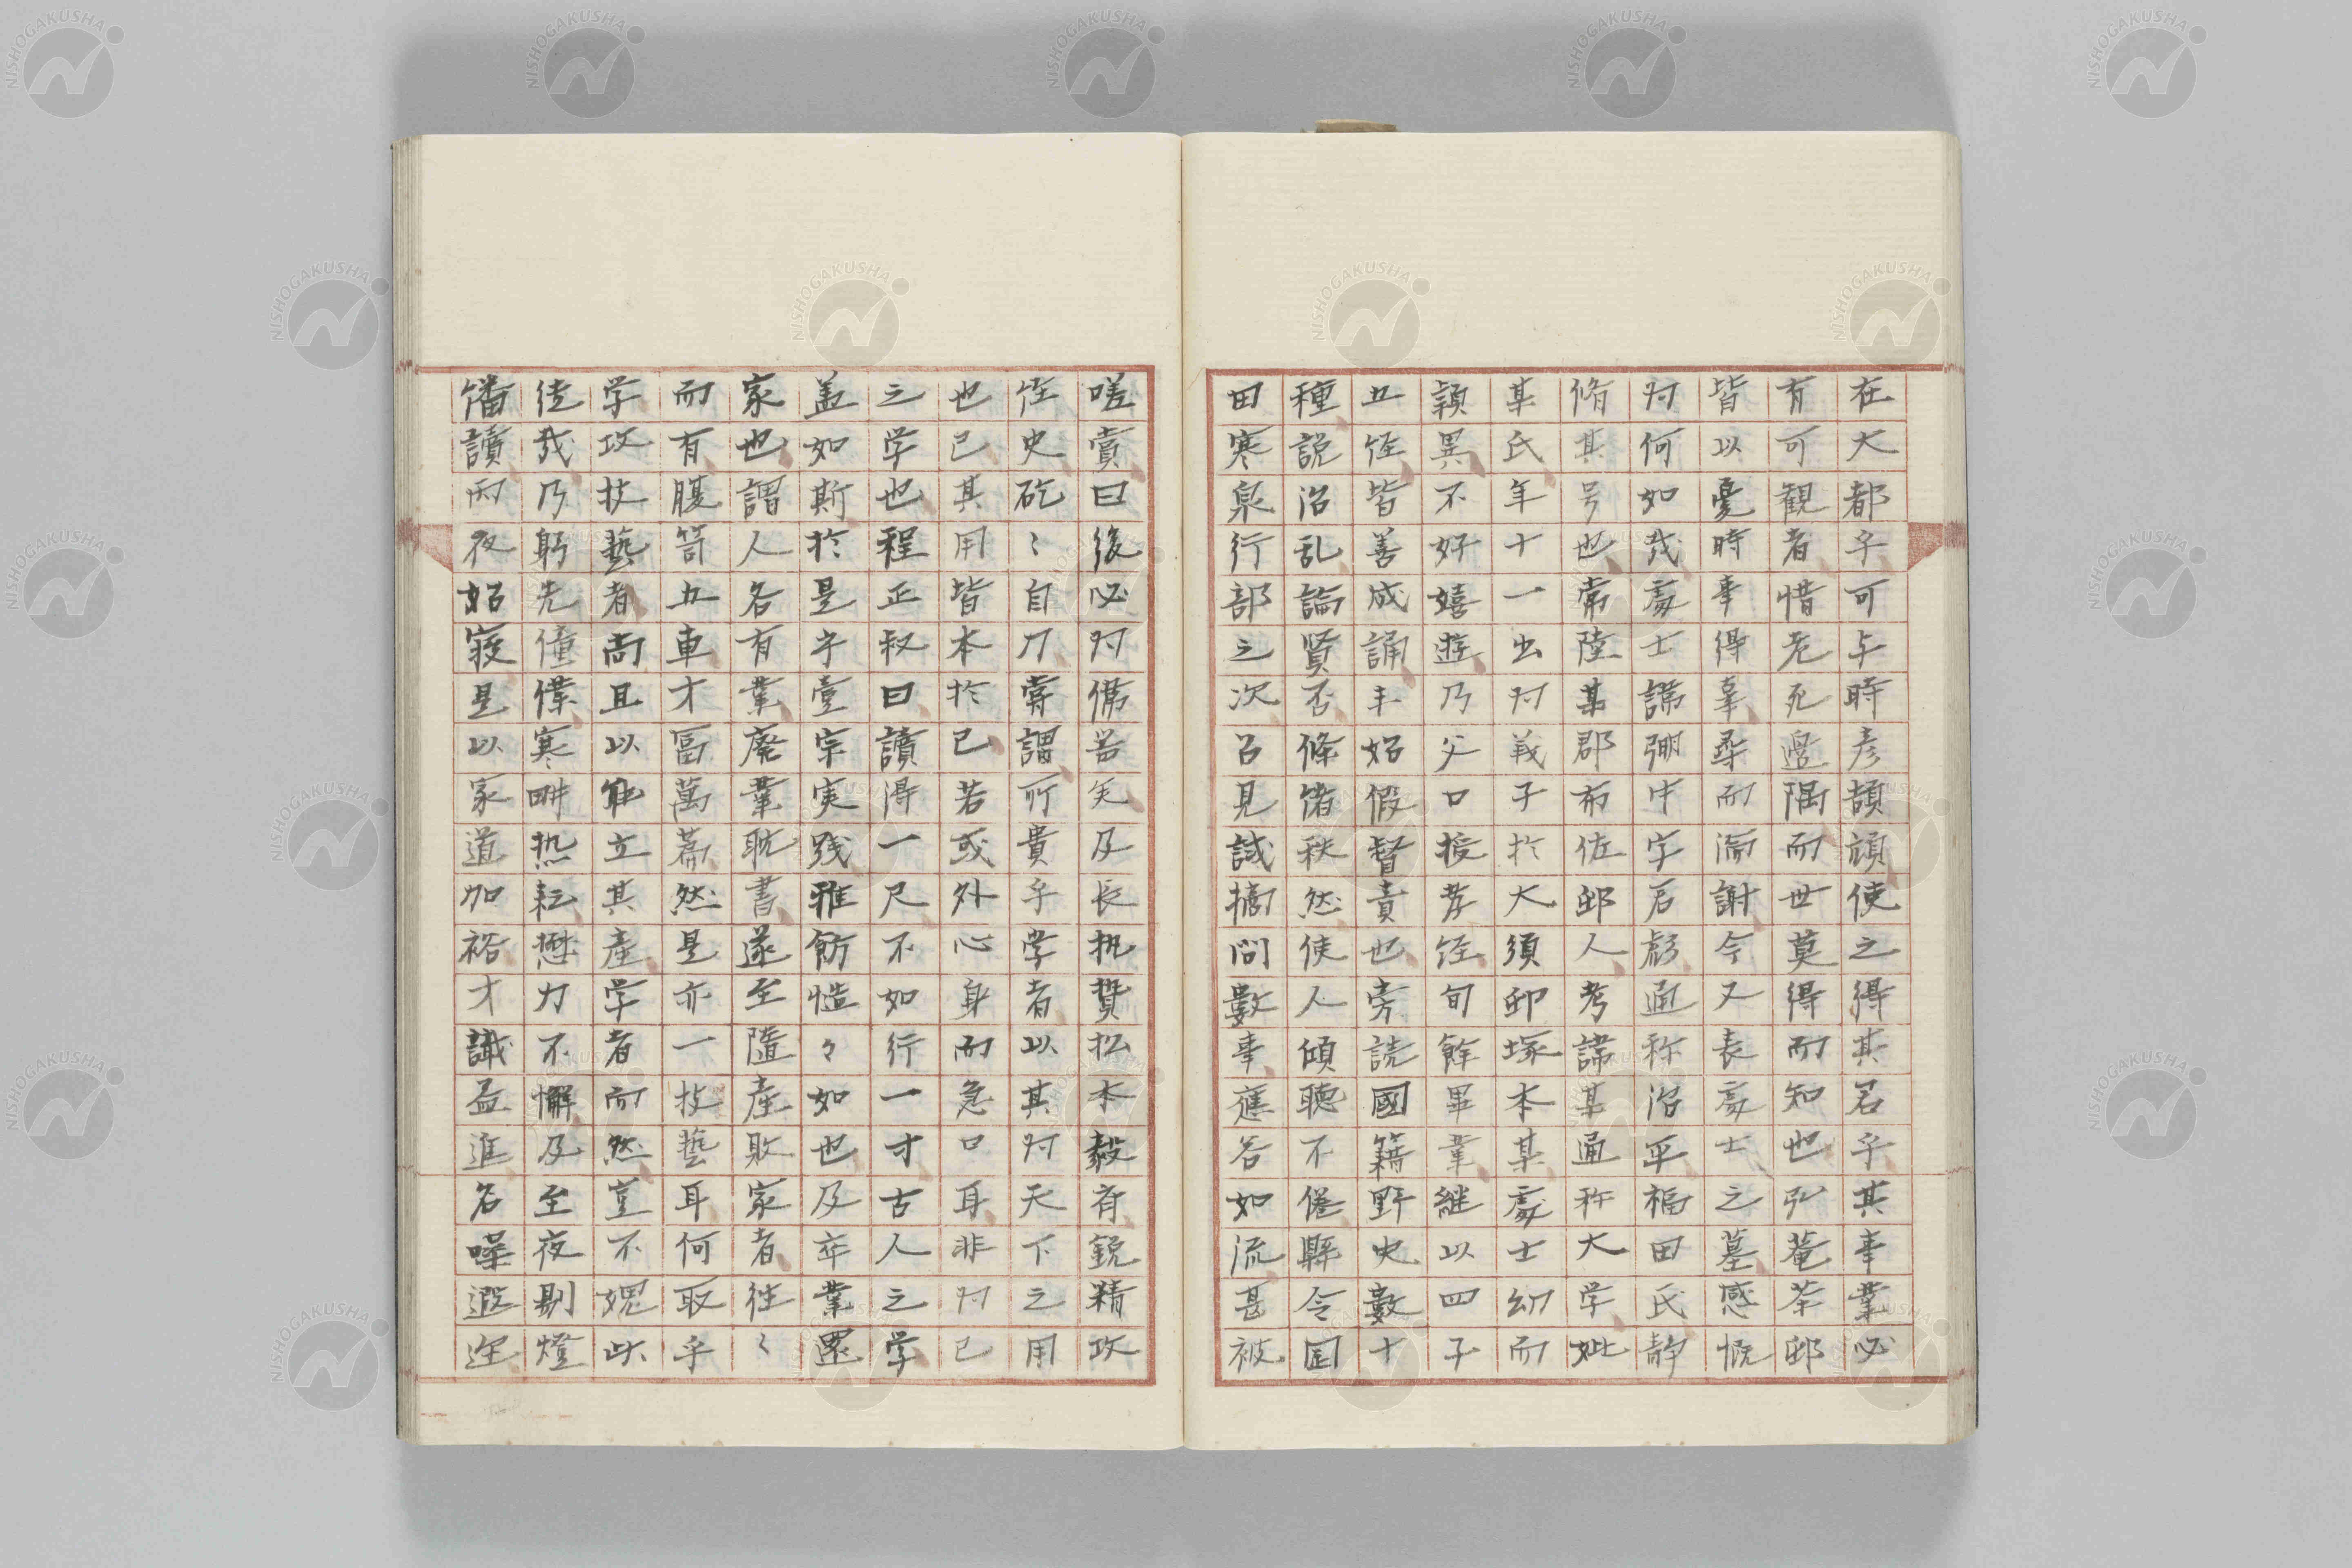 在大都乎可与時彦頡頏使之得其君乎其事業必
有可観者惜老死邊隅而世莫得而知也弘菴茶邨
皆以憂時事得辜尋而溘謝今又表處士之墓感慨
为何如哉處士諱弸中字君彪通称治平福田氏静
脩其号也常陸某郡布佐邨人考諱某通称大学妣
某氏年十一出为義子於大須邨塚本某處士幼而
穎異不好嬉遊乃父口授孝經旬餘畢業継以四子
五經皆善成誦丰姿假督責也旁読國籍野史數十
種說治乱論賢否條緒秩然使人傾聴不倦縣令国
田寒泉行部之次召見試摘問數事應答如流甚被
嗟賞曰後必为儒者矣及長执贄松本毅斎鋭精攻
經史矻〻自力嘗謂所貴乎学者以其为天下之用
也已其用皆本於已若或外心身而急口耳非为已
之学也程正叔曰讀得一尺不如行一寸古人之学
盖如斯於是乎壹宗実践雅飭慥々如也及卒業還
家也謂人各有業廃業耽書遂至隨産敗家者往〻
而有腹笥五車才富萬篇然是亦一技藝耳何取乎
学攻技藝者尚且以能立其産学者而然豈不媿此
徒哉乃躬先僮僕寒畊热耘懋力不懈及至夜剔燈
繙讀丙夜始寝是以家道加裕才識益進名噪遐迩